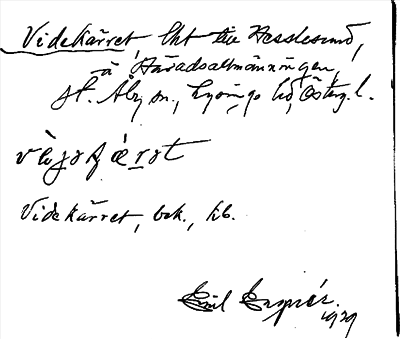 Videkärret, lht till Hesslesund,
å Häradsallmänningen,
St. Åby sn., Lysings hd, Österg. l.
Videkärret, bek., hb.
Emil
1929